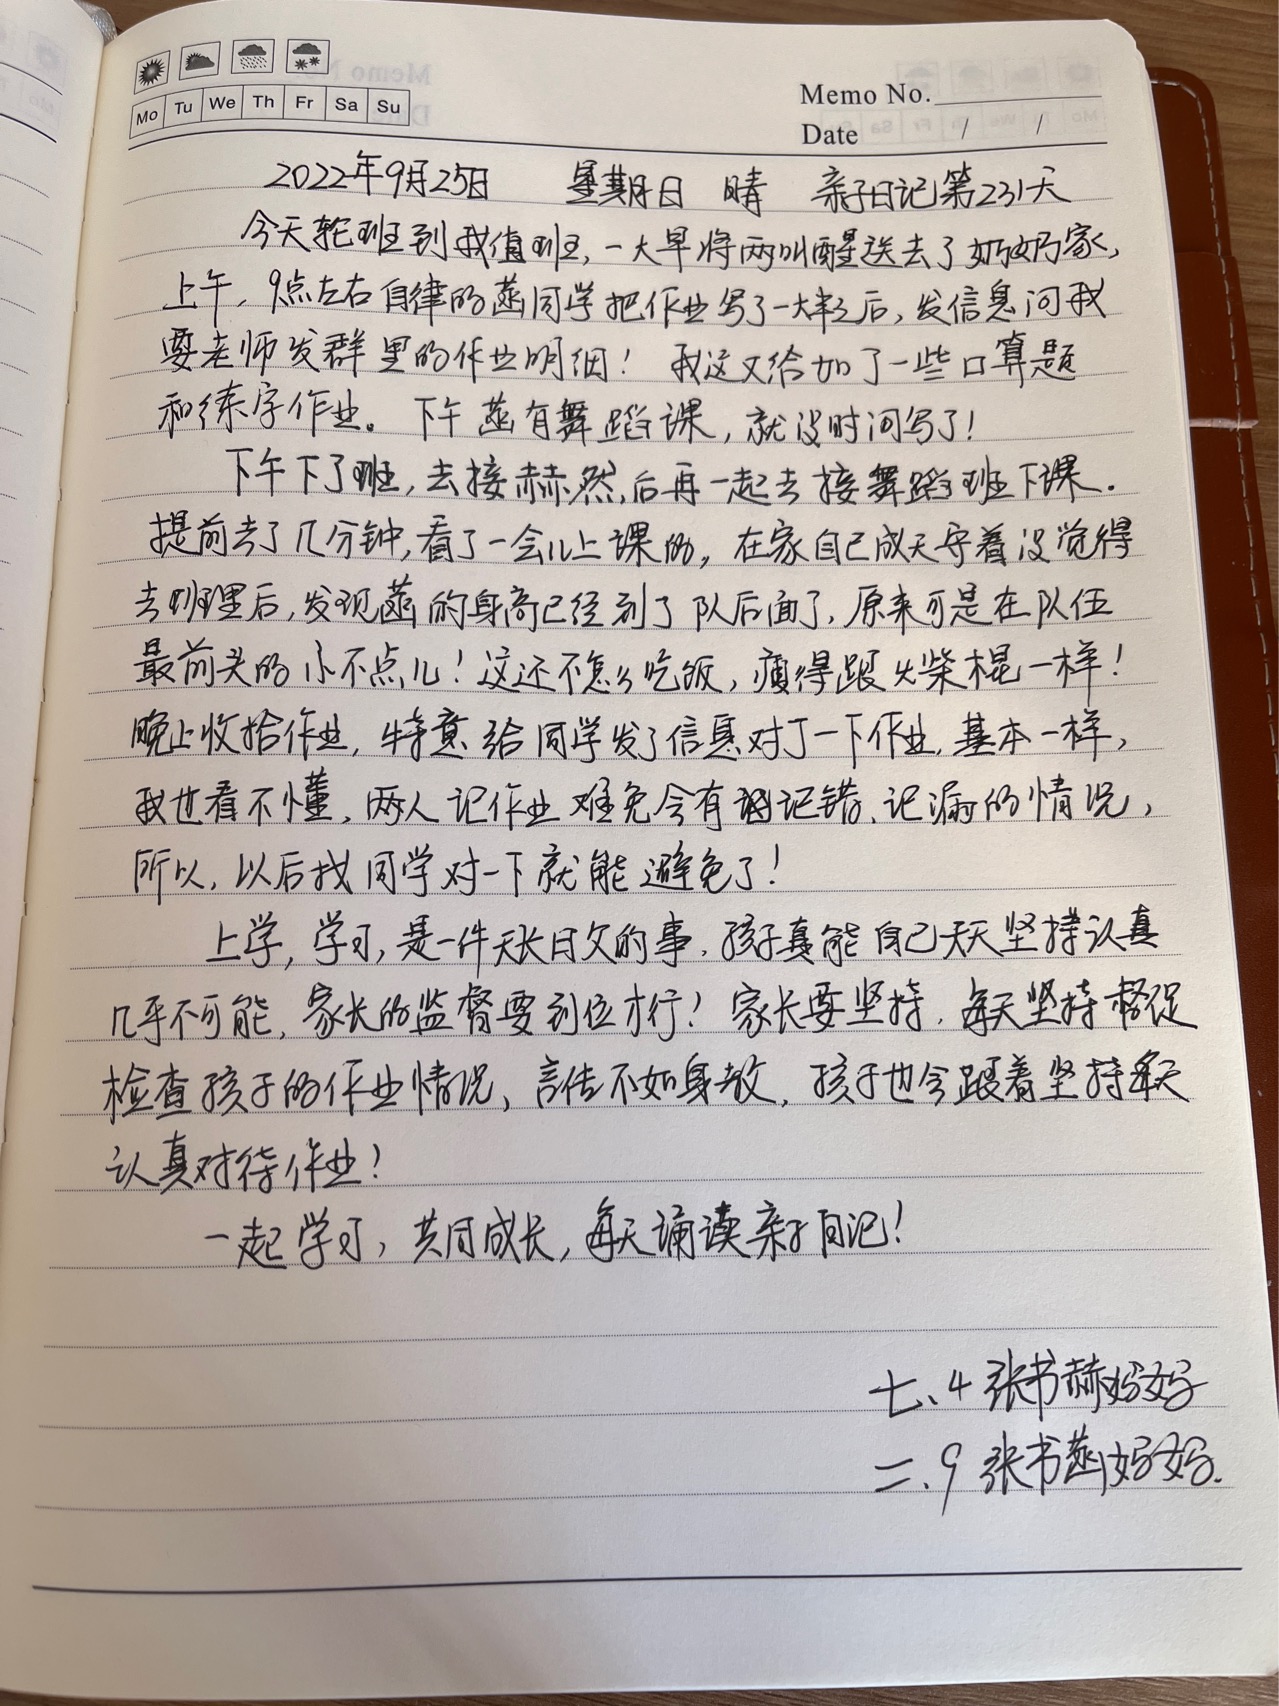 Mo Tu We Th Fr Sa Su
Memo No.
Date / /
2022年9月25日 星期日 晴 亲子日记第231天
今天轮班到我值班,一大早将两叫醒送去了奶奶家,
上午,9点左右自律的菡同学把作业写了一大半之后,发信息问我
要老师发群里的作业明细!我这又给加了一些口算题
和练字作业。下午菡有舞蹈课,就没时间写了!
下午下了班,去接赫然,后再一起去接舞蹈班下课.
提前去了几分钟,看了一会儿上课的,在家自己成天守着没觉得
去班里后,发现菡的身高已经到了队后面了,原来可是在队伍
最前头的小不点儿!这还不怎么吃饭,瘦得跟火柴棍一样!
晚上收拾作业,特意给同学发了信息对了一下作业,基本一样,
我也看不懂,两人记作业难免会有记错、记漏的情况,
所以,以后找同学对一下就能避免了!
上学,学习,是一件天长日久的事,孩子真能自己天天坚持认真
几乎不可能,家长的监督要到位才行!家长要坚持,每天坚持督促
检查孩子的作业情况,言传不如身教,孩子也会跟着坚持每天
认真对待作业!
一起学习,共同成长,每天诵读亲子日记!
七、4 张书赫妈妈
二、9 张书菡妈妈.